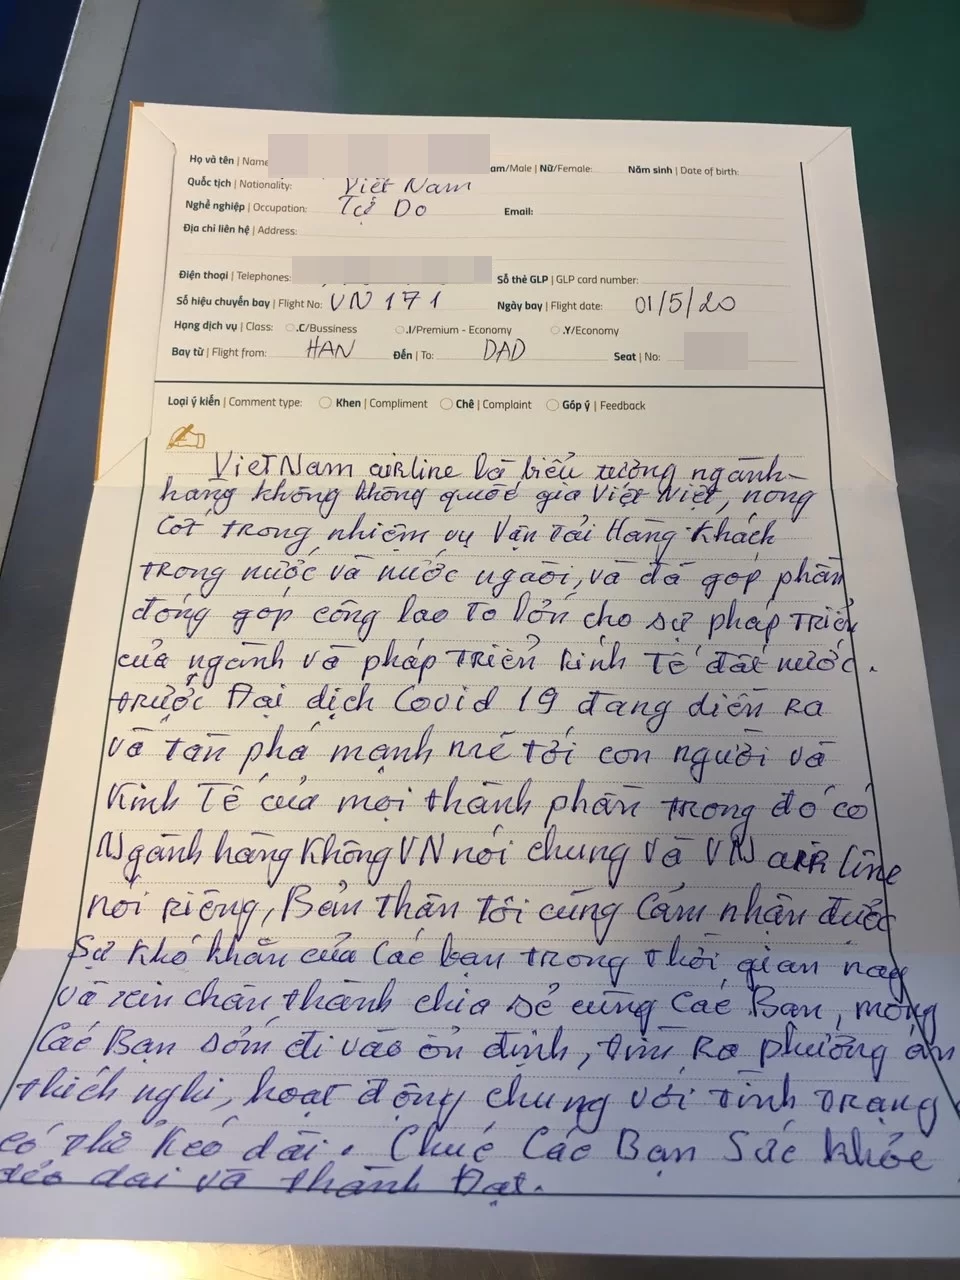 Họ và tên | Name am/Male | Nữ/Female: Năm sinh | Date of birth:
Quốc tịch | Nationality: Việt Nam
Nghề nghiệp | Occupation: Tự Do Email:
Địa chỉ liên hệ | Address:
Điện thoại | Telephones: Số thẻ GLP | GLP card number:
Số hiệu chuyến bay | Flight No: VN 171 Ngày bay | Flight date: 01/5/20
Hạng dịch vụ | Class: .C/Bussiness .I/Premium - Economy .Y/Economy
Bay từ | Flight from: HAN Đến | To: DAD Seat | No:
Loại ý kiến | Comment type: Khen | Compliment Chê | Complaint Góp ý | Feedback
VietNam airline là biểu tượng ngành
hàng không không quốc gia Việt Việt, nòng
cốt trong nhiệm vụ Vận Tải Hàng Khách
trong nước và nước ngoài, và đã góp phần
đóng góp công lao to lớn cho sự pháp triển
của ngành và pháp triển kinh tế đất nước.
trước Đại dịch Covid 19 đang diễn ra
và tàn phá mạnh mẽ tới con người và
kinh Tế của mọi thành phần trong đó có
Ngành hàng không VN nói chung và VN airline
nói riêng, Bản thân tôi cũng cảm nhận được
Sự khó khăn của Các bạn trong thời gian nay
và xin chân thành chia sẻ cùng Các Bạn, mong
Các Bạn sớm đi vào ổn định, tìm ra phương án
thích nghi, hoạt động chung với tình trạng
có thể kéo dài. Chúc Các Bạn Sức khỏe
dẻo dai và thành Đạt.